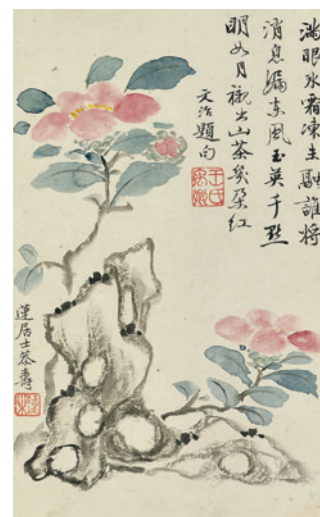 滿眼氷霜凍未融誰將
消息漏東風玉英千點
明如月襯出山茶幾朵紅
文治題句
王氏禹卿
蓮居士恭壽